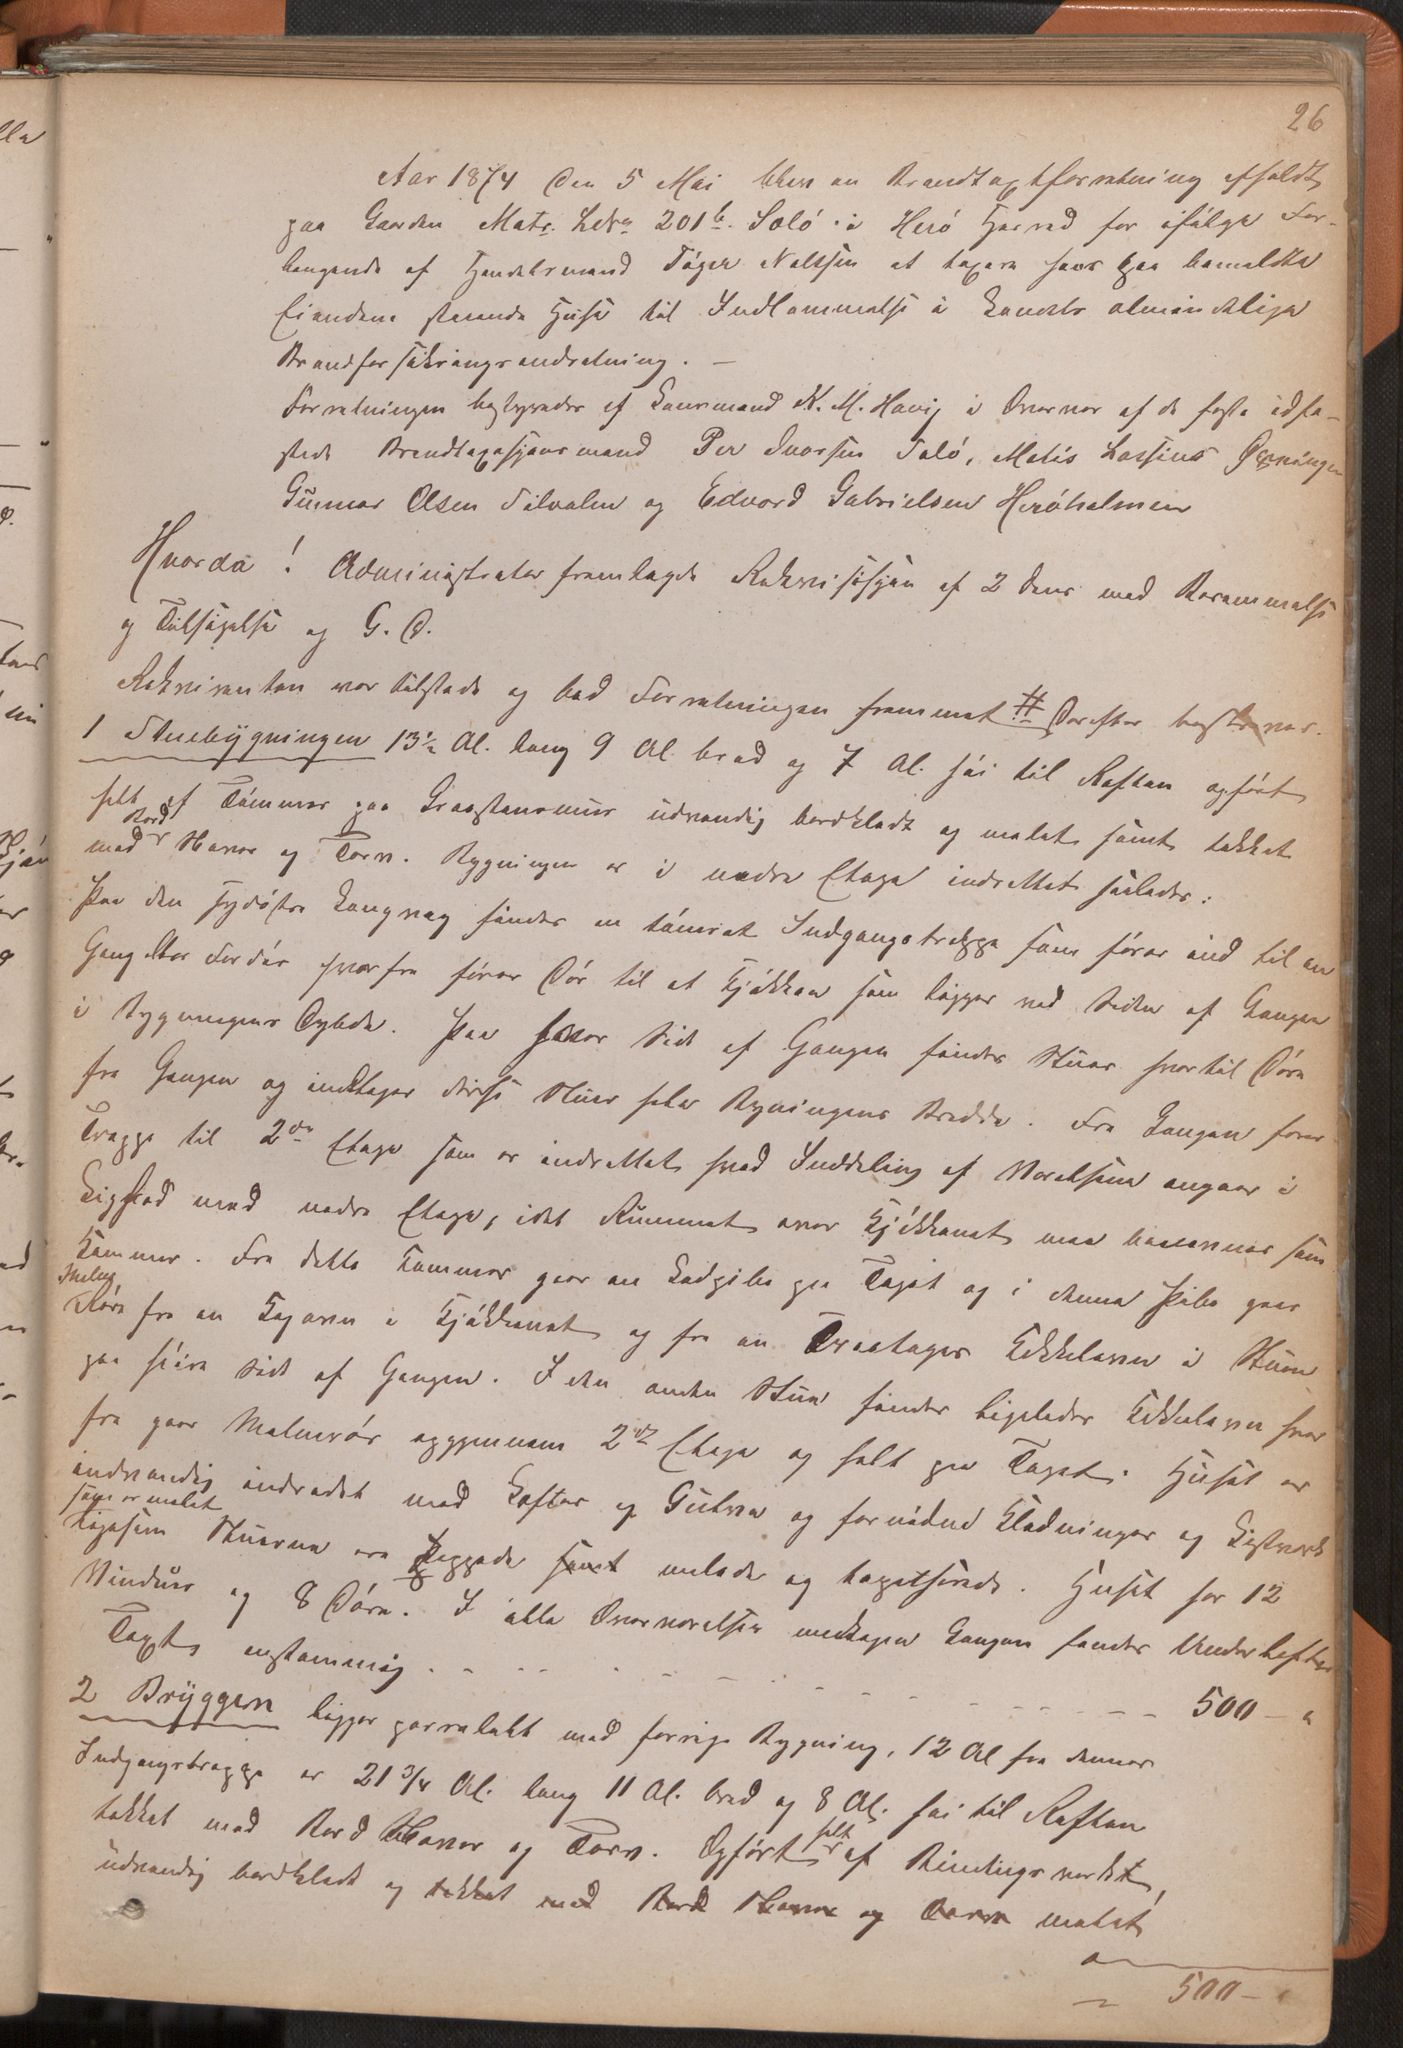 26
Aar 1874 den 5 Mai blev en Brandtaxtforretning afholdt
paa Gaarden Matr. Løbno 201b. Solø i Herø Herred for ifølge For-
langende af Handelsmand Tøger Nilssen at taxere hans paa bemeldte
Eiendom staaende Huse til Indlemmelse i Landets almindelige
Brandforsikringsindretning. —
Forretningen bestyredes af Lensmand K. M. Havig i Overvær af de faste edfæ-
stede Brandtaxasjonsmænd Per Ivarsen Solø, Matis Lassens
Gunnar Olsen Silvalen og Edvard Gabrielsen Herøholmen
Hvorda! Administrator fremlagde Rekvisisjon af 2 dens med Berammelse
og Tilsigelse og G. D.
Rekvirenten var tilstede og bad Forretningen fremmet # Derefter
1 Stuebygningen 13½ Al. lang 9 Al bred og 7 Al. høi til Raften opført
helt af Tømmer paa Graastensmur udvendig bordklædt og malet samt tækket
med Bord Næver og Torv. Bygningen er i nedre Etage indrettet saaledes:
Paa den sydøstre Langvæg findes en tømret Indgangstrappe som fører ind til en
Gang eller Fordør hvorfra fører Dør til et Kjøkken som ligger ved Siden af Gangen
i Bygningens Dybde. Paa hver Side af Gangen findes Stuer hvortil Døre
fra Gangen og indtager disse Stuer hele Bygningens Bredde. Fra Gangen fører
Trappe til 2den Etage som er indrettet hvad Inddeling af Værelserne angaar i
Lighed med nedre Etage, idet Rummet over Kjøkkenet maa benævnes som
Kammer. Fra dette Kammer gaar en Ladpibe paa Taget og i denne Pibe gaar
Malm
Røre fra en Kogovn i Kjøkkenet og fra en Treetages Kakkelovn i Stuen
paa høire Side af Gangen. I den anden Stue findes ligeledes Kakkelovn hvor
fra gaar Malmrør opgjennem 2den Etage og helt paa Taget. Huset er
indvendig indredet med Lofter og Gulve og fornødne Klædninger og Listverk
som er malet
ligesom Stuerne ere pappede samt malede og tapetserede. Huset har 12
Vinduer og 8 Døre. I alle Overværelser medtagen Gangen findes Underlofter
Taxt enstemmig . . . . . . . . . . 500 — "
2 Bryggen ligger parrallelt med forrige Bygning, 12 Al fra dennes
Indgangstrappe er 21 3/4 Al. lang 11 Al. bred og 8 Al. høi til Raften
tækket med Bord Næver og Torv. Opført helt af Bindingsverk,
udvendig bordklædt og tækket med Bord Næver og Torv malet
500 —